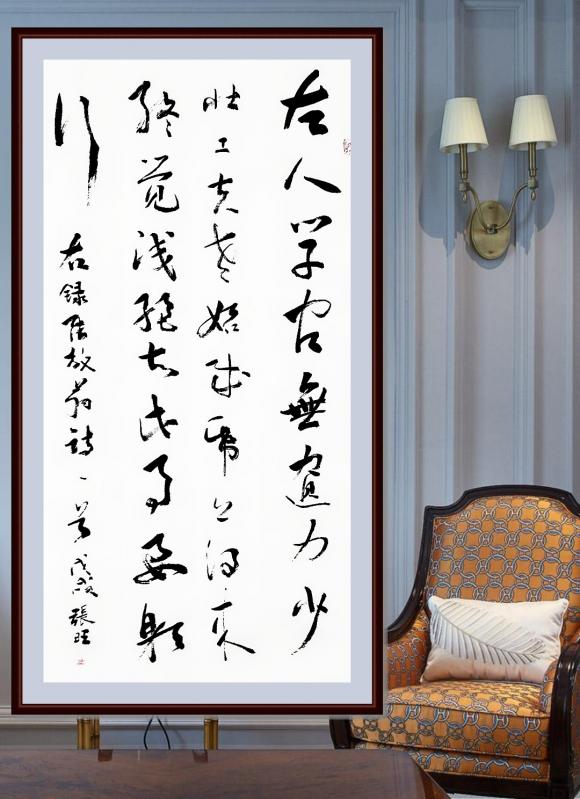 古人学问無遗力少
壮工夫老始成纸上得来
终觉浅绝知此事要躬
行
右録陆放翁詩一首 戊戌 張旺